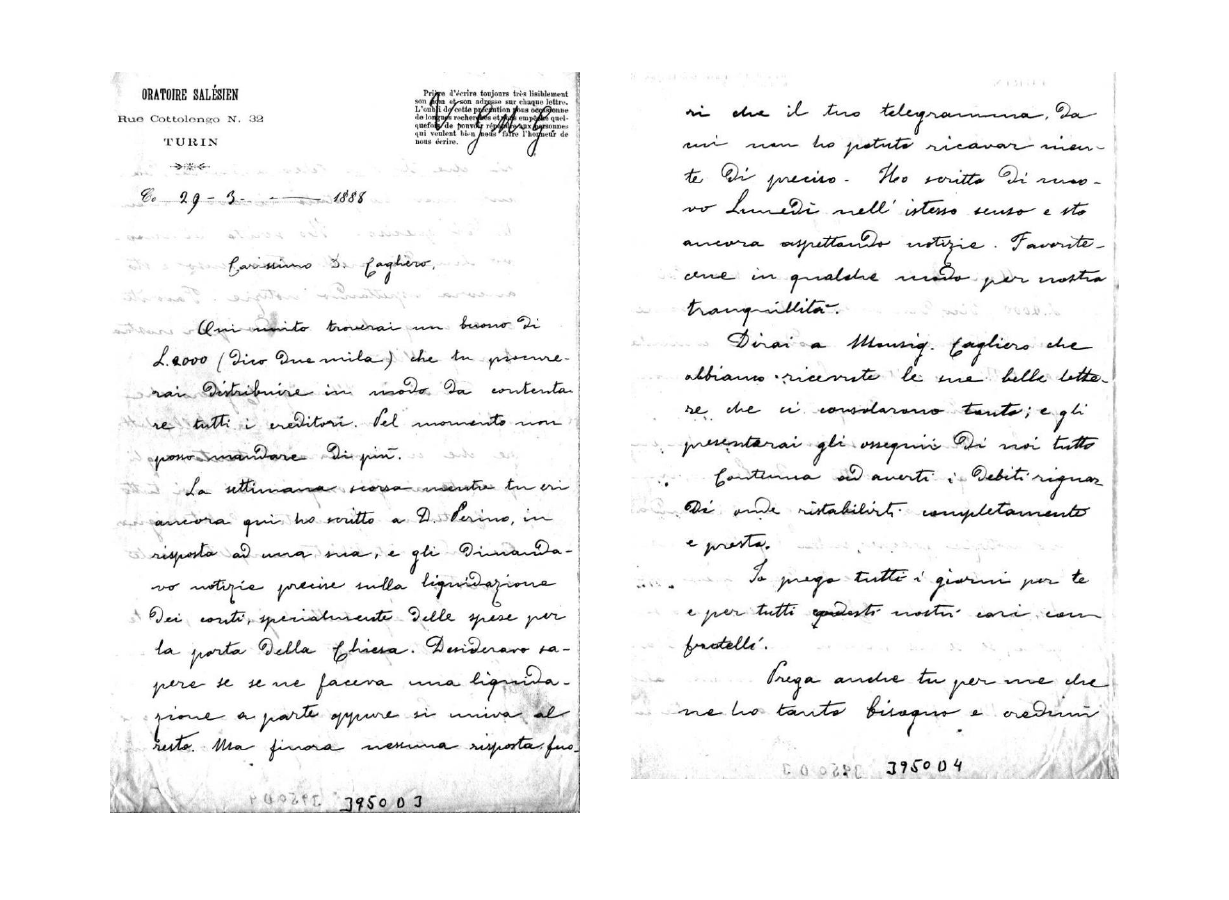 ORATOIRE SALÉSIEN
Rue Cottolengo N. 32
TURIN
Prière d'écrire toujours très lisiblement
son nom et son adresse sur chaque lettre.
L'oubli de cette précaution nous occasionne
de longues recherches et nous empêche quel-
quefois de pouvoir répondre aux personnes
qui veulent bien nous faire l'honneur de
nous écrire.
29-3- 1888
Carissimo D. Cagliero,
Qui unito troverai un buono di
L.2000 (dico due mila) che tu procure-
rai distribuire in modo da contenta-
re tutti i creditori. Pel momento non
posso mandare di più.
La settimana scorsa mentre tu eri
ancora qui ho scritto a D. Perino, in
risposta ad una sua, e gli dimanda-
vo notizie precise sulla liquidazione
dei conti, specialmente delle spese per
la porta della Chiesa. Desideravo sa-
pere se se ne faceva una liquida-
zione a parte oppure si univa al
resto. Ma finora nessuna risposta fuo-
ri che il tuo telegramma, da
cui non ho potuto ricavar nien-
te di preciso. Ho scritto di nuo-
vo Lunedì nell' istesso senso e sto
ancora aspettando notizie. Favorite-
cene in qualche modo per nostra
tranquillità.
Dirai a Monsig. Cagliero che
abbiamo ricevute le sue belle lette-
re che ci consolarono tanto; e gli
presenterai gli ossequii di noi tutti
Continua ad averti i debiti riguar
di onde ristabilirti completamente
e presto.
Io prego tutti i giorni per te
e per tutti codesti nostri cari con
fratelli.
Prega anche tu per me che
ne ho tanto bisogno e credimi
395003
395004